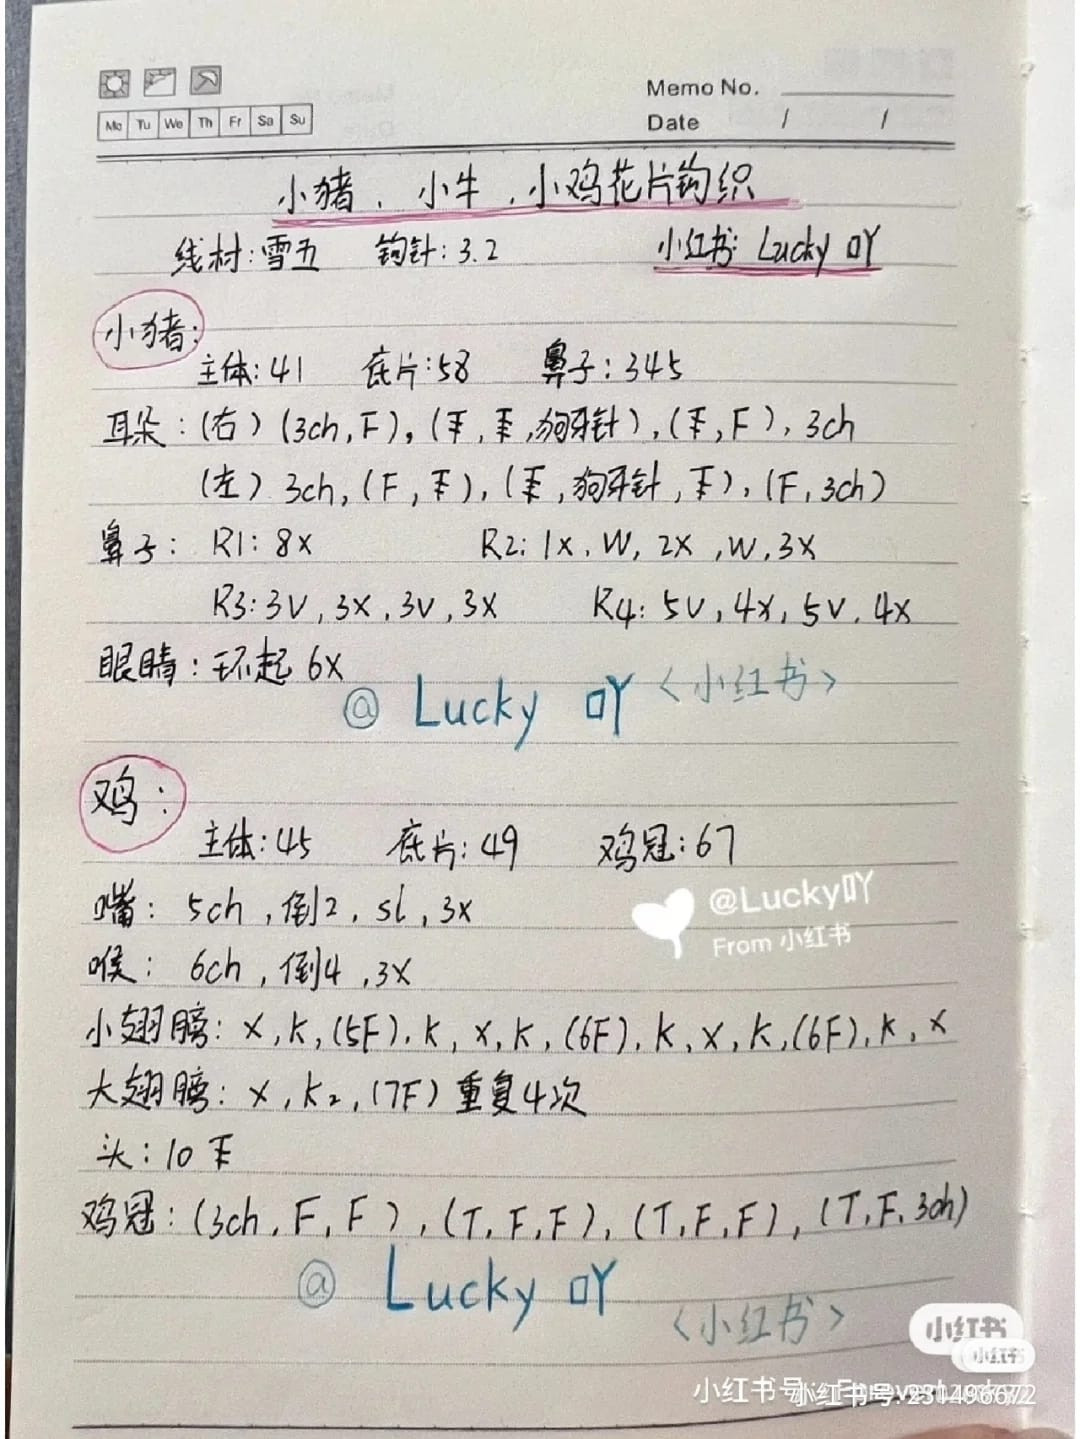 Memo No.
Mo Tu We Th Fr Sa Su
Date / /
小猪、小牛、小鸡花片钩织
线材:雪五 钩针:3.2 小红书: Lucky 吖
小猪:
主体:41 底片:58 鼻子:345
耳朵:(右)(3ch,F),(,,狗牙针),(,F),3ch
(左)3ch,(F,),(,狗牙针,),(F,3ch)
鼻子: R1:8X R2:1X,W,2X,W,3X
R3:3V,3X,3V,3X R4:5V,4X,5V,4X
眼睛:环起6X
@ Lucky 吖 <小红书>
鸡:
主体:45 底片:49 鸡冠:67
@Lucky吖
嘴: 5ch,倒2,sl,3X
From 小红书
喉: 6ch,倒4,3X
小翅膀:X,K,(5F),K,X,K,(6F),K,X,K,(6F),K,X
大翅膀:X,K2,(7F)重复4次
头:10
鸡冠:(3ch,F,F),(T,F,F),(T,F,F),(T,F,3ch)
@ Lucky 吖
<小红书>
小红书
小红书
小红书号:
小红书号: